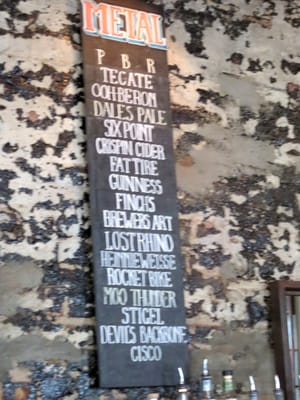 METAL
P B R
TECATE
OOH·BERON
DALES PALE
SIX POINT
CRISPIN CIDER
FAT TIRE
GUINNESS
FINCH'S
BREWERS ART
LOST RHINO
HEINNIEWEISSE
ROCKET BIKE
MOO THUNDER
STICEL
DEVILS BACKBONE
CISCO